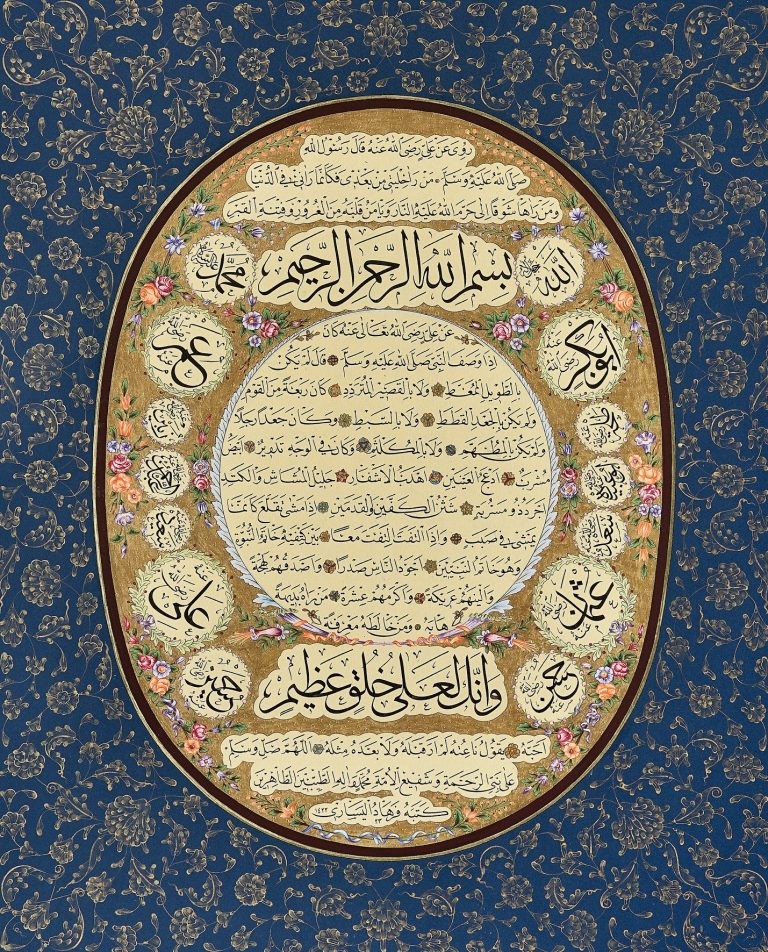 روى عن علي رضي الله عنه قال رسول الله
صلى الله عليه وسلم من رأى حليتي من بعدي فكأنما رآني في الدنيا
ومن رآها شوقا إلى حرم الله عليه النار وأمن قلبه من الغرور وفتنة القبر
الله جل جلاله
بسم الله الرحمن الرحيم
محمد
ابوبكر رضي الله عنه
عمر رضي الله عنه
عن علي رضي الله تعالى عنه كان
إذا وصف النبي صلى الله عليه وسلم قال لم يكن
بالطويل الممغط ولا بالقصير المتردد كان ربعة من القوم
ولم يكن بالجعد القطط ولا بالسبط وكان جعدا رجلا
ولم يكن بالمطهم ولا بالمكلثم وكان في الوجه تدوير أبيض
مشرب أدعج العينين أهدب الأشفار جليل المشاش والكتد
أجرد ذو مسربة شثن الكفين والقدمين إذا مشى تقلع كأنما
يمشي في صبب وإذا التفت التفت معا بين كتفيه خاتم النبوة
وهو خاتم النبيين أجود الناس صدرا وأصدقهم لهجة
وألينهم عريكة وأكرمهم عشرة من رآه بديهة
هابه ومن خالطه معرفة
طلحة
زبير
سعد
عثمان رضي الله عنه
علي رضي الله عنه
حسن
حسين
وإنك لعلى خلق عظيم
أحبه يقول ناعته لم أر قبله ولا بعده مثله اللهم صل وسلم
على نبي الرحمة وشفيع الأمة محمد وآله الطيبين الطاهرين
كتبه فرهاد